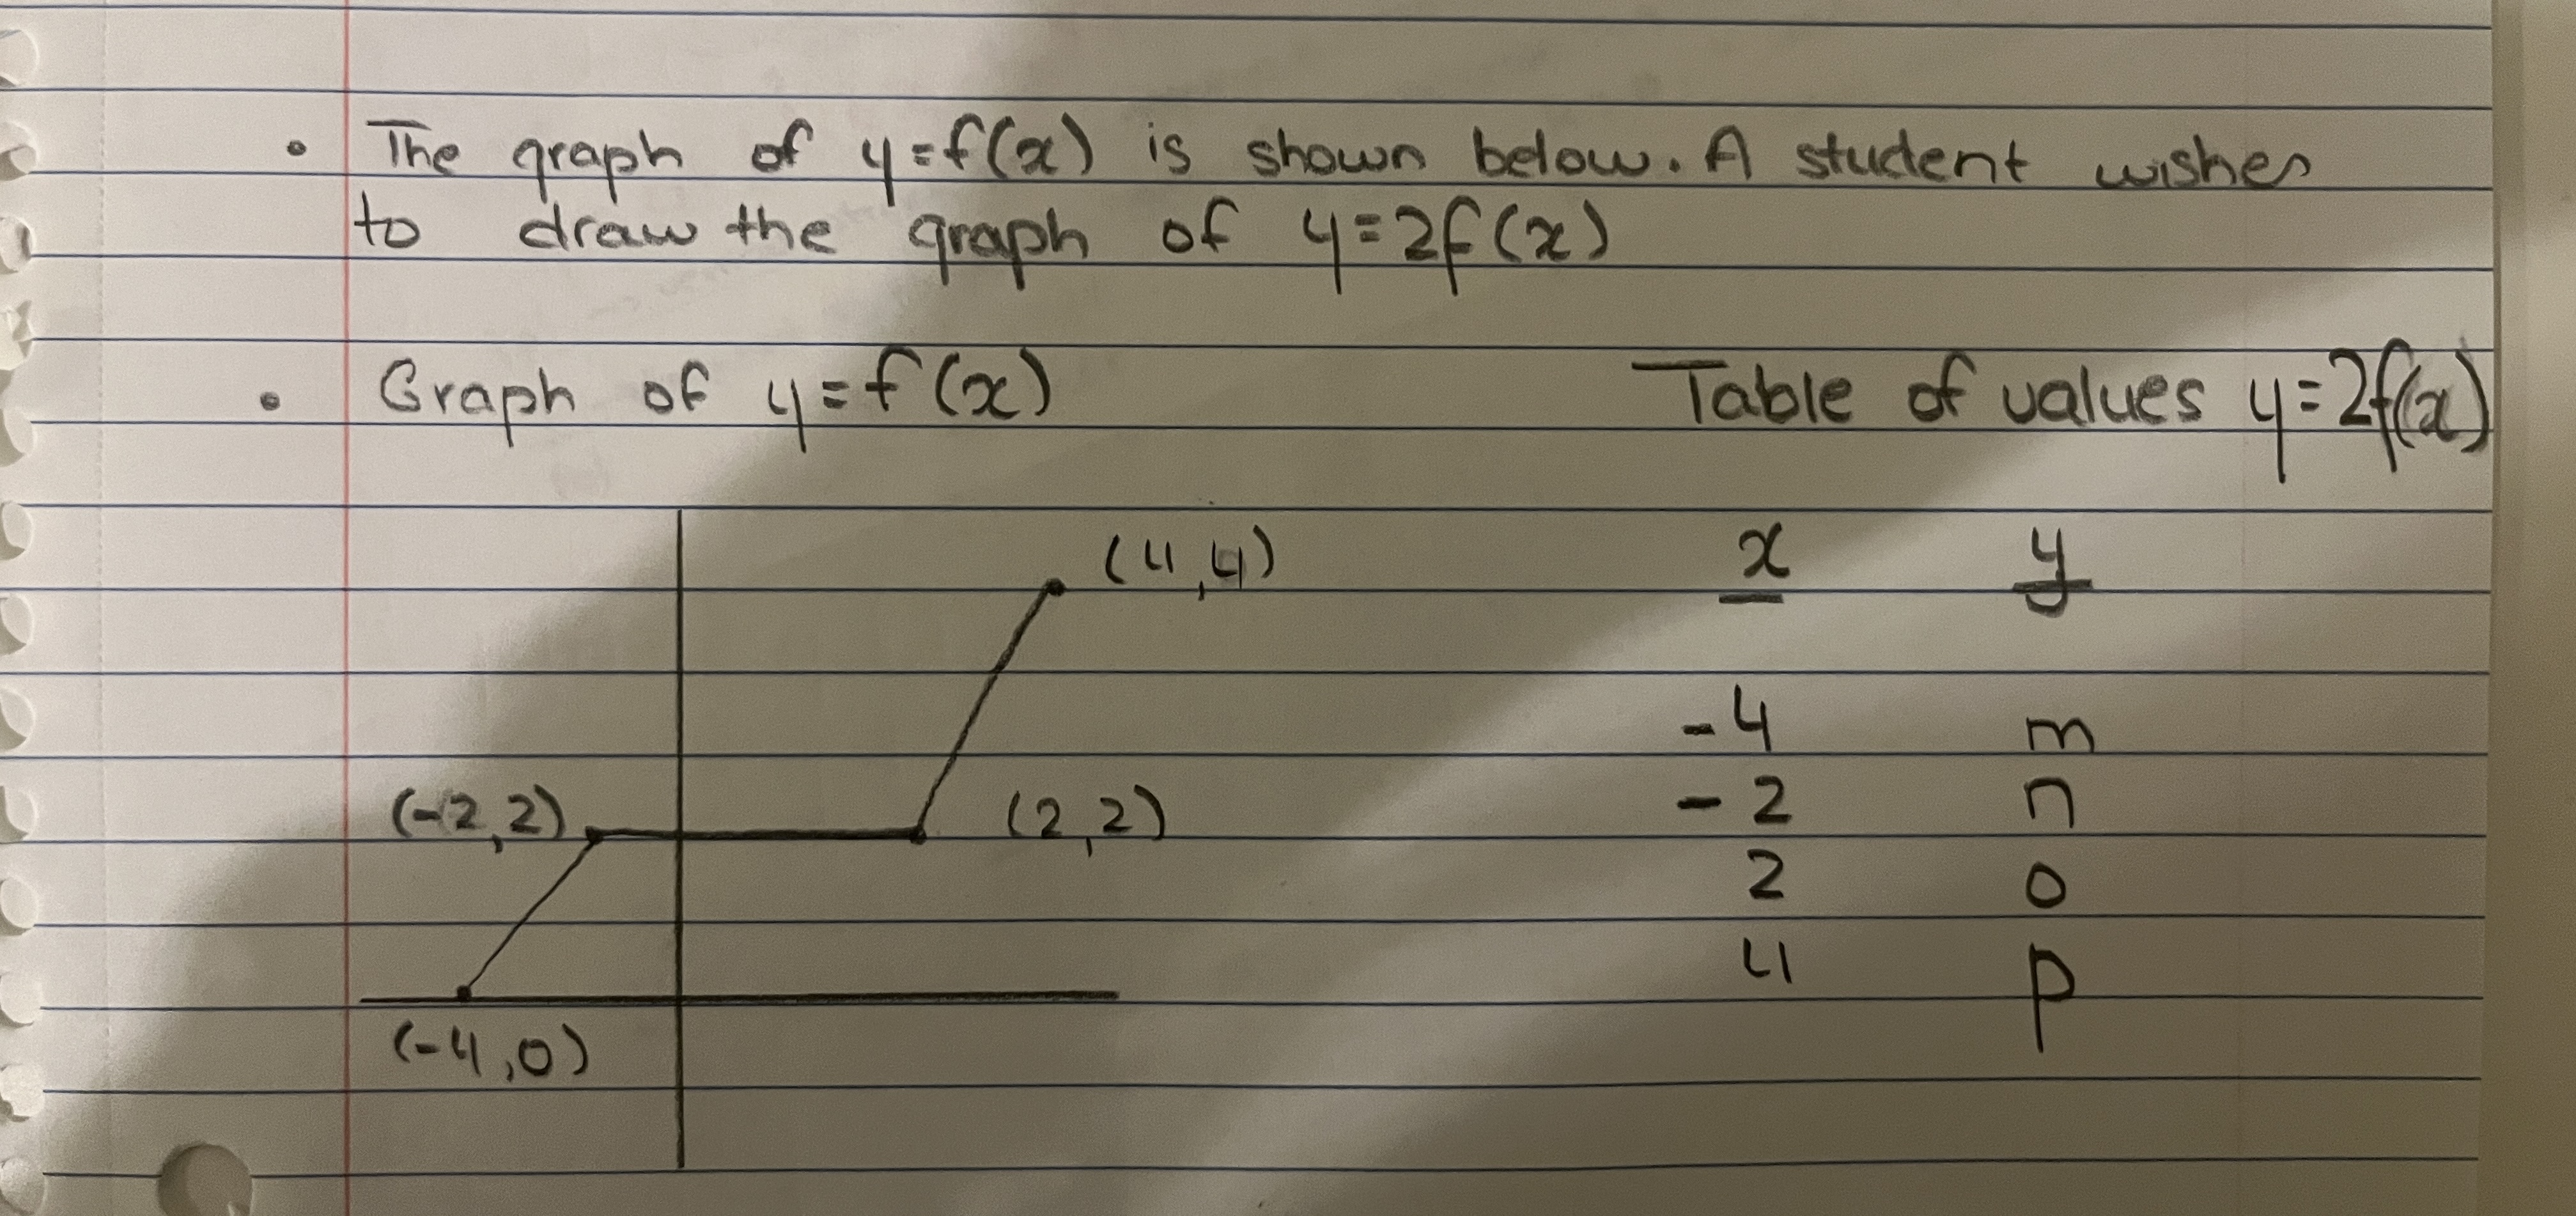 • The graph of y=f(x) is shown below. A student wishes
to draw the graph of y=2f(x)
• Graph of y=f(x)
Table of values y=2f(x)
(4,4)
(-2,2)
(2,2)
(-4,0)
x y
-4 m
-2 n
2 o
4 p